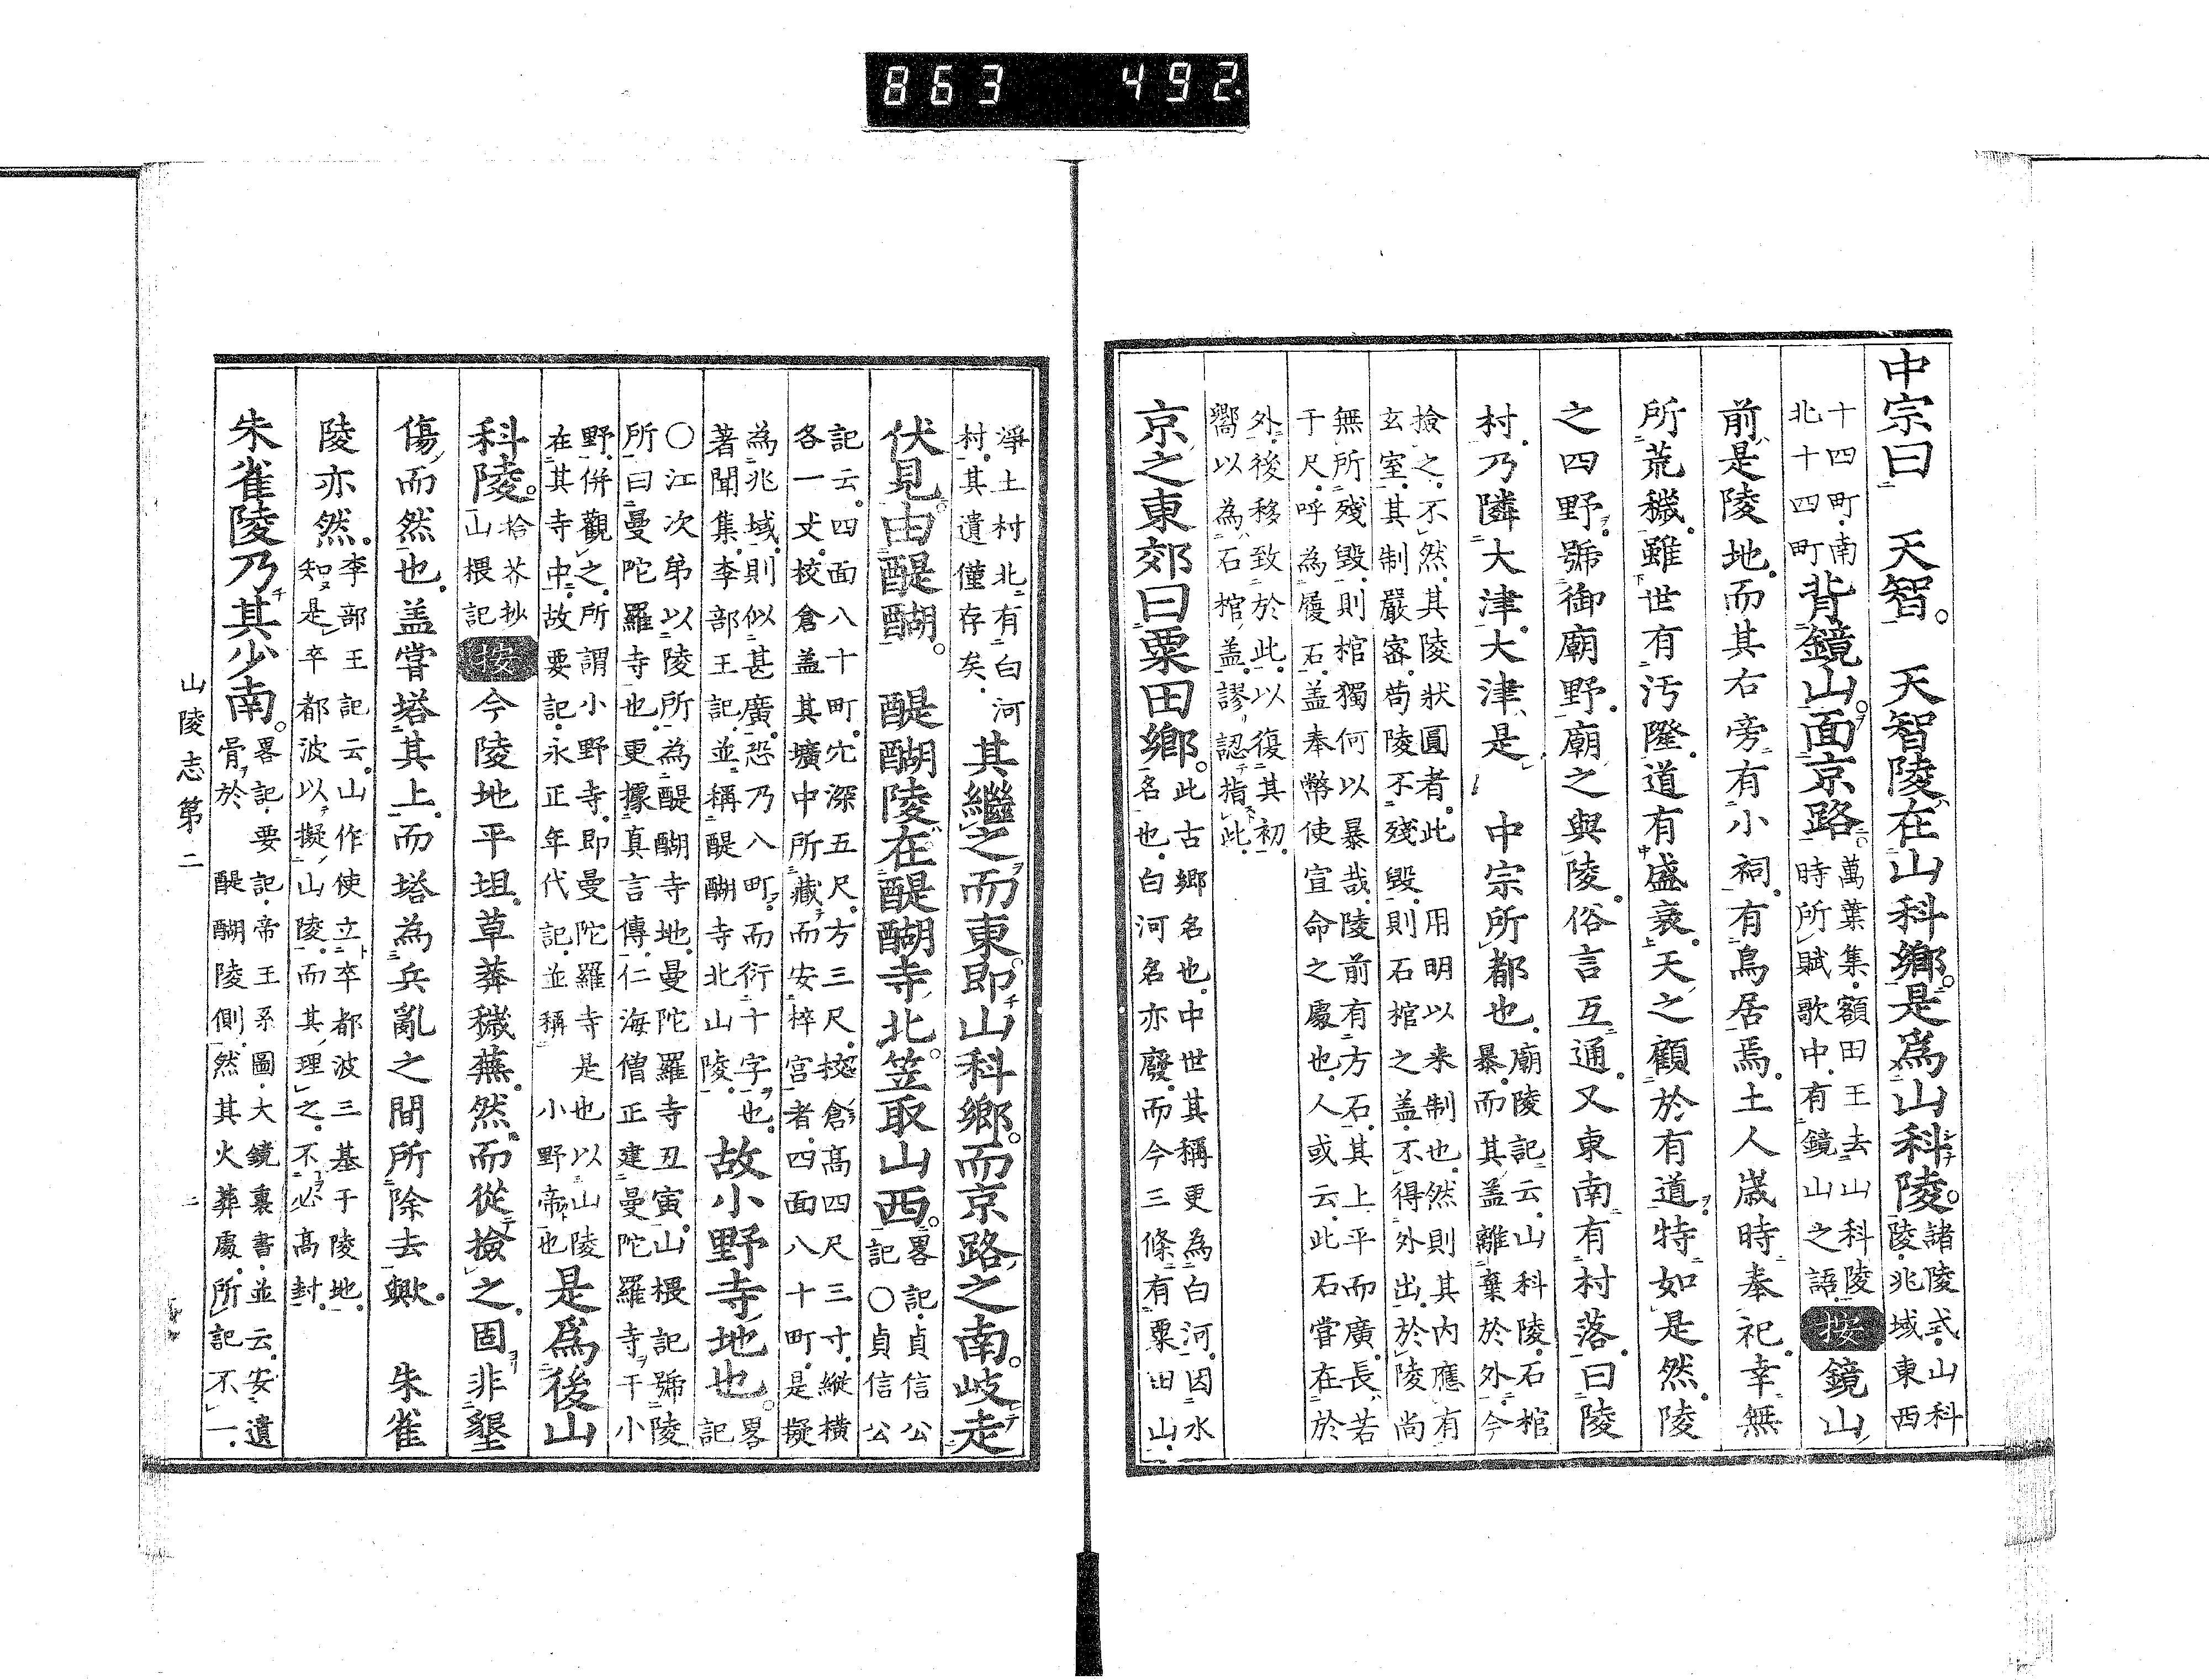 863 492
中宗曰 天智。 天智陵在山科鄉。是爲山科陵。諸陵式。山科
陵。兆域。東西
十四町。南
北十四町背鏡山。面京路。萬葉集。額田王去山科陵
時所賦歌中。有鏡山之語。按鏡山
前。是陵地。而其右旁有小祠。有鳥居焉。土人歲時奉祀。幸無
所荒穢。雖世有汚隆。道有盛衰。天之顧於有道。特如是然。陵
之四野。號御廟野。廟之與陵。俗言互通。又東南有村落。曰陵
村。乃隣大津。大津是 中宗所都也。廟陵記云。山科陵。石棺
暴。而其盖離棄於外。今
撿之。不然。其陵狀圓者。此 用明以来制也。然則其內應有
玄室。其制嚴密。苟陵不殘毀。則石棺之盖。不得外出。於陵尚
無所殘毀。則棺獨何以暴哉。陵前有方石。其上平而廣。長若
干尺。呼為履石。盖奉幣使宣命之處也。人或云。此石嘗在於
外。後移致於此。以復其初。
嚮以為石棺盖。謬認指此。
京之東郊曰粟田鄉。此古鄉名也。中世其稱更為白河。因水
名也。白河名亦廢。而今三條有粟田山。
淨土村北有白河
村。其遺僅存矣。其繼之而東。即山科鄉。而京路之南。岐走
伏見。由醍醐。 醍醐陵在醍醐寺北。笠取山西。畧記。貞信公
記〇貞信公
記云。四面八十町。穴深五尺。方三尺。挍倉高四尺三寸。縱橫
各一丈。挍倉盖其壙中所藏而安梓宮者。四面八十町。是擬
為兆域。則似甚廣。恐乃八町。而衍十字也。
著聞集。李部王記。並稱醍醐寺北山陵。故小野寺地也。畧
記
〇江次第以陵所為醍醐寺地。曼陀羅寺丑寅。山椳記號陵
所曰曼陀羅寺也。更據真言傳。仁海僧正建曼陀羅寺于小
野。併觀之。所謂小野寺。即曼陀羅寺是也以山陵
在其寺中。故要記。永正年代記。並稱 小野帝也是爲後山
科陵。拾芥抄
山椳記按今陵地平坦。草莽穢蕪。然而從撿之。固非墾
傷而然也。盖嘗塔其上。而塔為兵亂之間所除去歟。 朱雀
陵亦然。李部王記云。山作使立卒都波三基于陵地。
知是卒都波以擬山陵。而其理之。不必高封。
朱雀陵乃其少南。畧記。要記。帝王系圖。大鏡裏書。並云。安遺
骨於 醍醐陵側。然其火葬處。所記不一。
山陵志第二
二